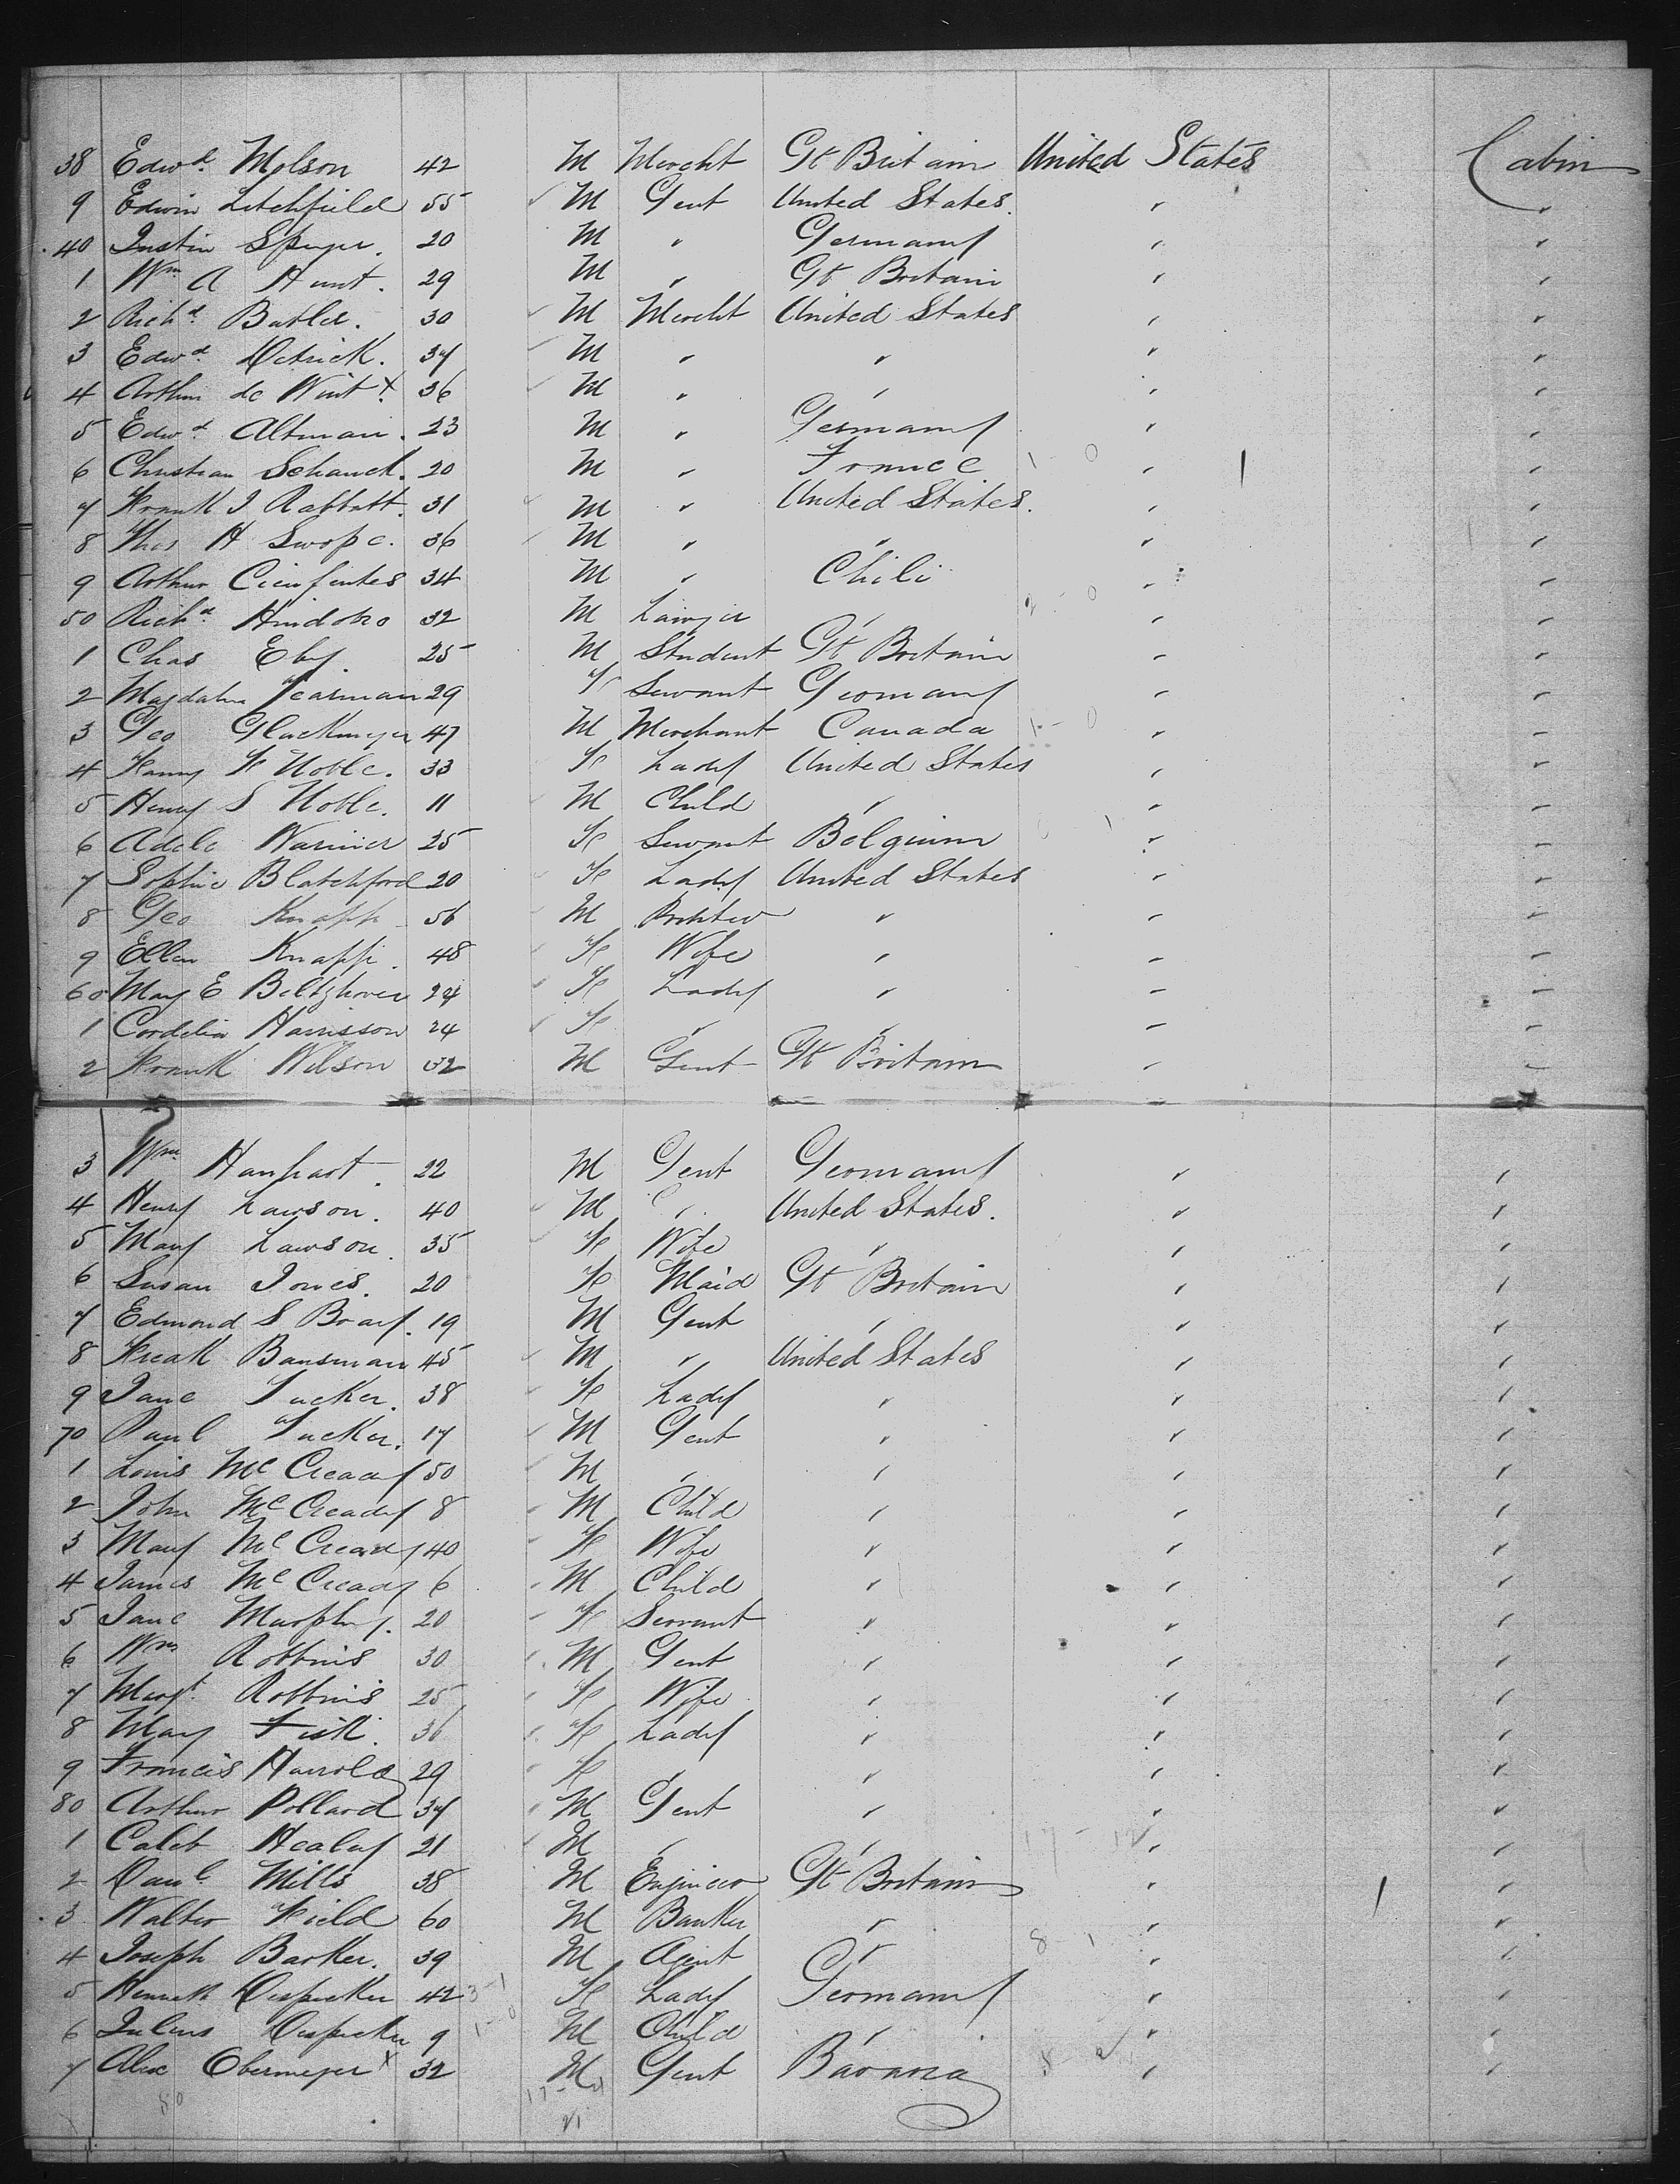 38 Edwd. Molson 42 M Mercht Gt Britain United States Cabin
9 Edwin Litchfield 55 M Gent United States. " "
40 Justin 20 M " Germany " "
1 Wm A Hunt. 29 M " Gt Britain " "
2 Richd. Butler. 30 M Mercht United States " "
3 Edwd. Detrick. 37 M " " " "
4 Arthur de Wint x 36 M " " " "
5 Edwd. Altman. 23 M " Germany " "
6 Christian Schauck. 20 M " France 1 - 0 " "
7 Frank J Rabbatt. 31 M " United States. " "
8 Thos H Swope. 36 M " " " "
9 Arthur Cienfuntes 34 M " Chili " "
50 Richd. 32 M Lawyer " " "
1 Chas Eby. 25 M Student Gt Britain " "
2 Magdalen Yearman 29 F Servant Germany " "
3 Geo Glackmeyer 47 M Merchant Canada 1 - 0 " "
4 Fanny F Noble. 33 F Lady United States " "
5 Henry S Noble. 11 M Child " " "
6 Adele Warinier 25 F Servant Belgium " "
7 Sophie Blatchford 20 F Lady United States " "
8 Geo Knapp 56 M Printer " " "
9 Ellen Knapp. 48 F Wife " " "
60 Mary E Beltzhover 24 F Lady " " "
1 Cordelia Harrisson 24 F " " " "
2 Frank Wilson 32 M Gent Gt Britain " "
3 Wm. Hanhart. 22 M Gent Germany " "
4 Henry Lawson. 40 M " United States. " "
5 Mary Lawson. 35 F Wife " " "
6 Susan Jones. 20 F Maid Gt Britain " "
7 Edmond S Bray. 19 M Gent " " "
8 Fredk Bausman 45 M " United States " "
9 Jane Tucker. 38 F Lady " " "
70 Paul Tucker. 17 M Gent " " "
1 Louis McCready 50 M " " " "
2 John McCready 8 M Child " " "
3 Mary McCready 40 F Wife " " "
4 James McCready 6 M Child " " "
5 Jane Murphy. 20 F Servant " " "
6 Wm Robbins 30 M Gent " " "
7 Margt. Robbins 25 F Wife " " "
8 Mary Fisk. 36 F Lady " " "
9 Francis Harrold 29 F " " " "
80 Arthur Pollard 37 M Gent " " "
1 Caleb Healy 21 M " " " "
2 Danl. Mills 38 M Engineer Gt Britain " "
3 Walter Field 60 M Banker " " "
4 Joseph Barker. 39 M Agent " 8 - 1 " "
5 Henriett Dispecker 42 3-1 F Lady Germany " "
6 Julius Dispecker 9 1-0 M Child " " "
7 Alex Obermeyer x 32 M Gent Bavaria " "
50